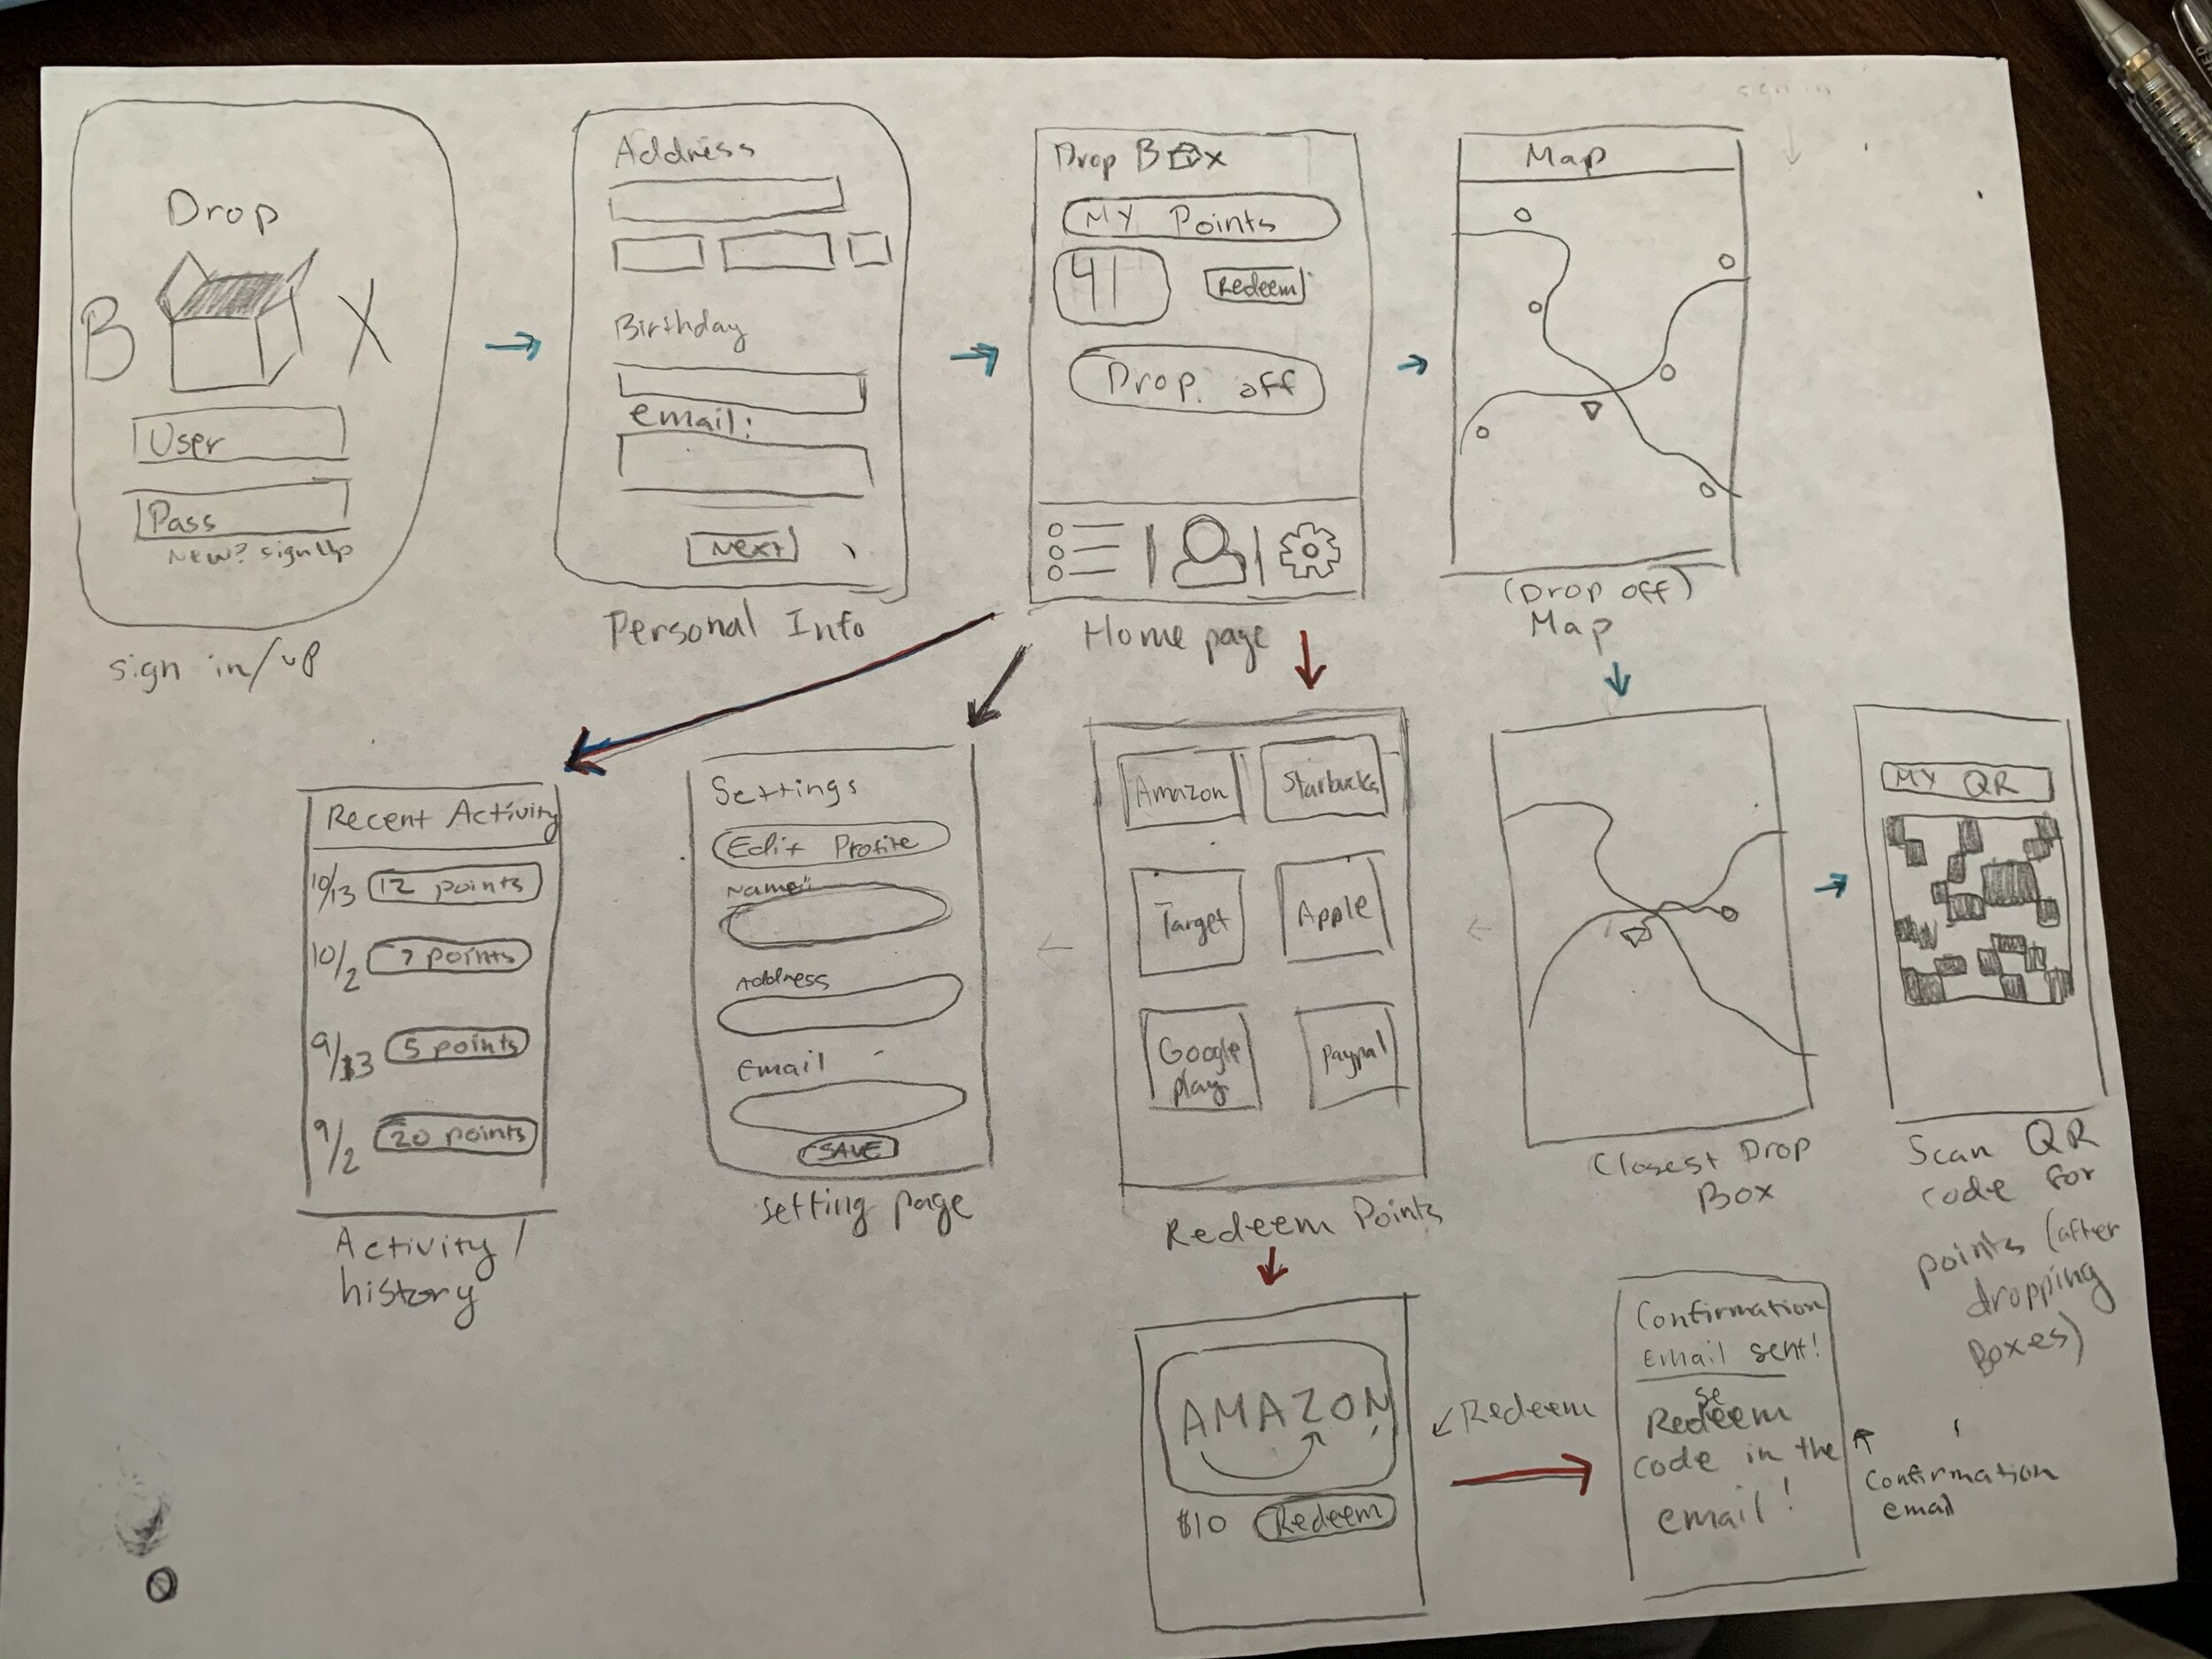 sign in
Drop
B X
User
Pass
New? sign Up
sign in/up
Address
Birthday
email:
Next
Personal Info
Drop B x
MY Points
41
Redeem
Drop off
Home page
Map
(Drop off)
Map
Recent Activity
10/13 12 points
10/2 7 points
9/13 5 points
9/2 20 points
Activity/
history
Settings
Edit Profile
Name:
Address
Email
SAVE
setting page
Amazon Starbucks
Target Apple
Google Paypal
play
Redeem Points
Closest Drop
Box
MY QR
Scan QR
code for
points (after
dropping
Boxes)
AMAZON
$10 Redeem
Redeem
Confirmation
Email sent!
Redeem
code in the
email!
Confirmation
email